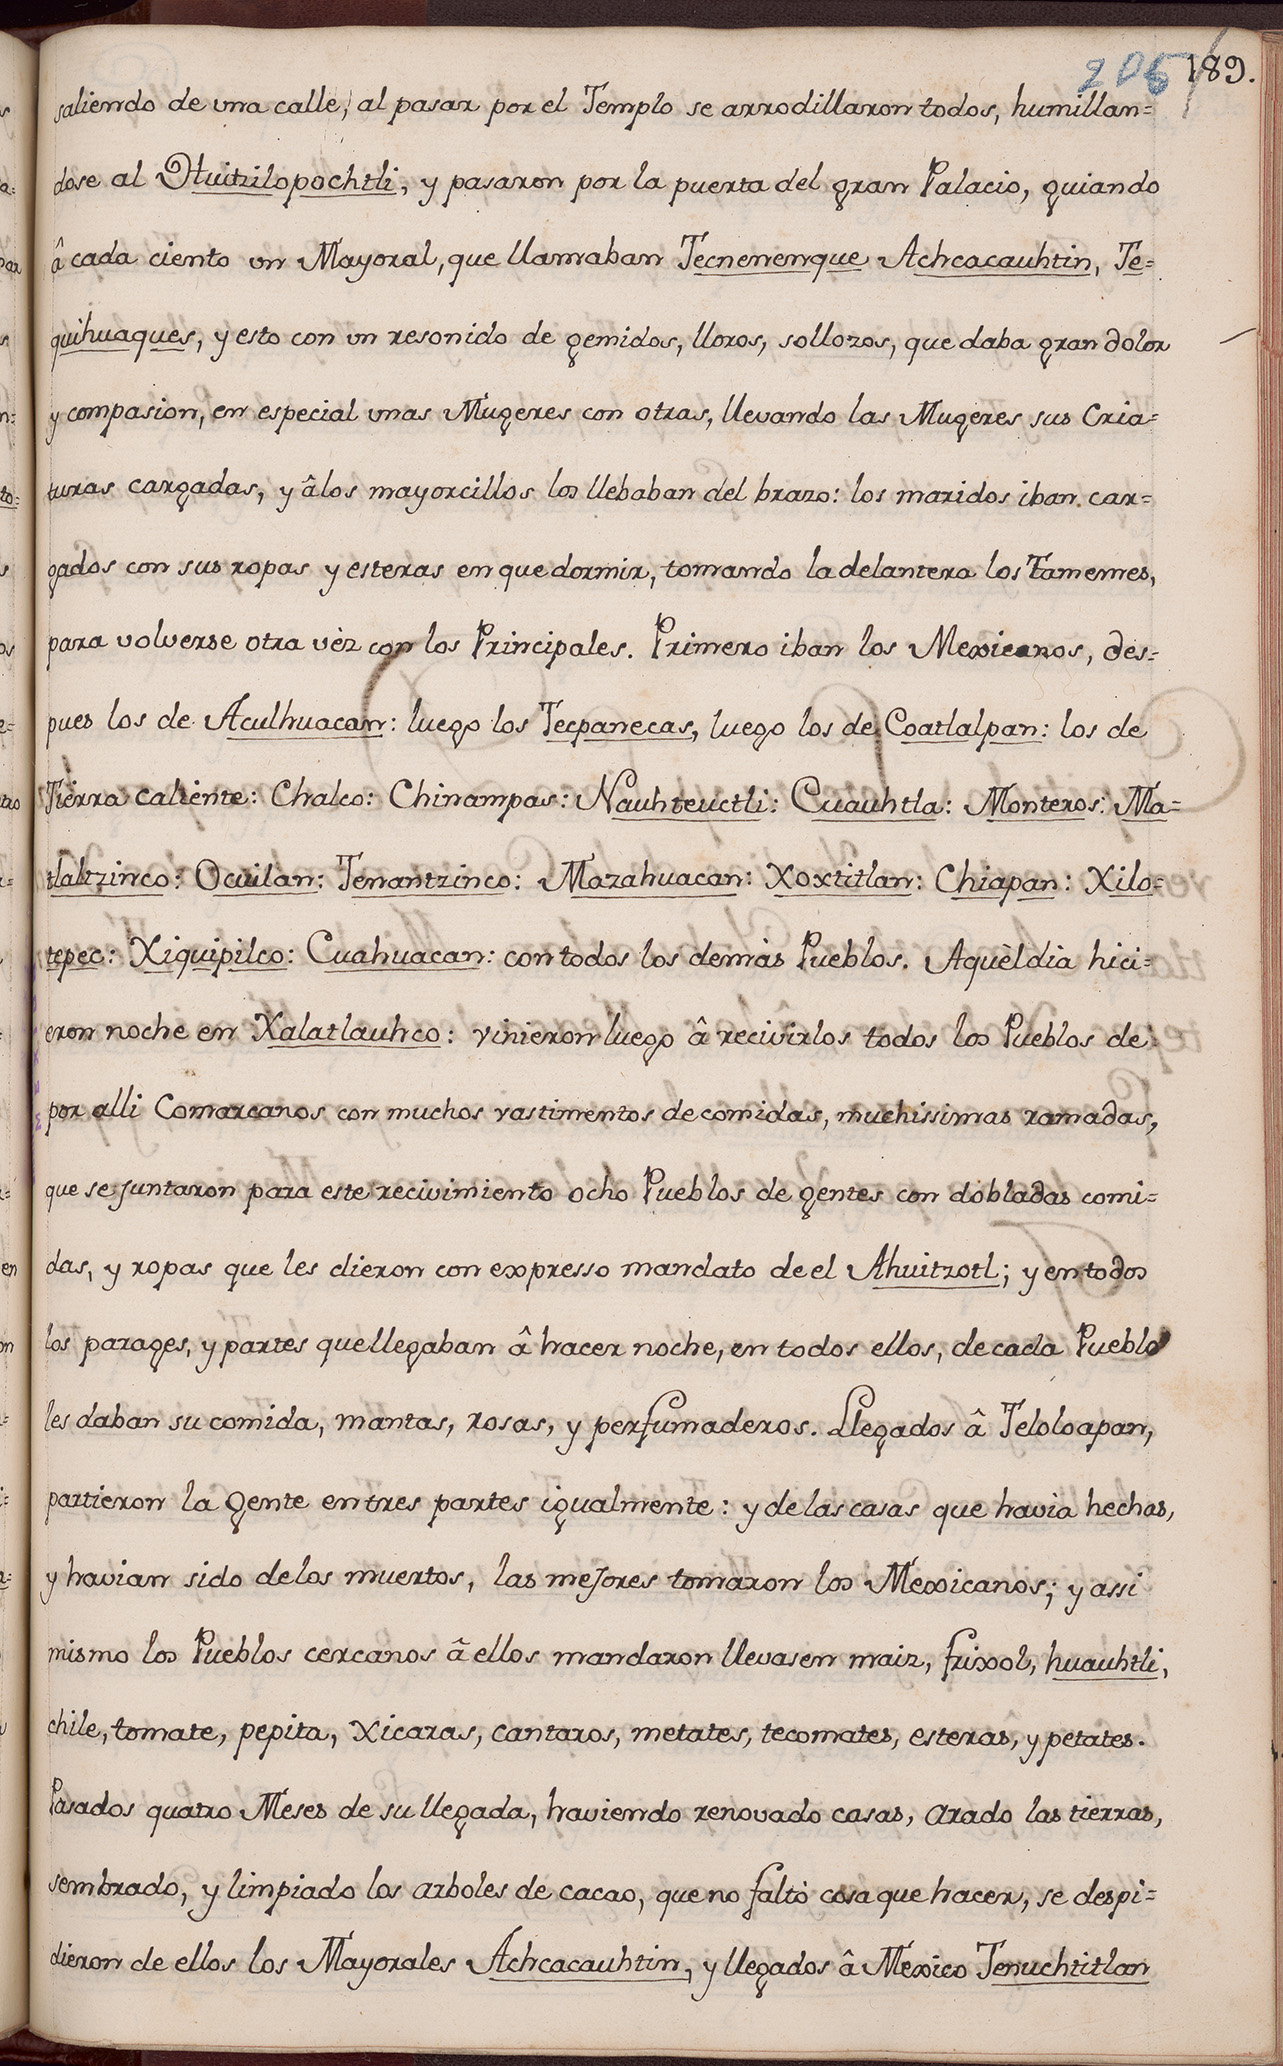 205 189.
saliendo de una calle, al pasar por el Templo se arrodillaron todos, humillan=
dose al Huitzilopochtli, y pasaron por la puerta del gran Palacio, guiando
â cada ciento un Mayoral, que llamaban Tecnenenque Achcacauhtin, Te=
quihuaques, y esto con un resonido de gemidos, lloros, sollozos, que daba gran dolor
y compasion, en especial unas Mugeres con otras, llevando las Mugeres sus Cria=
turas cargadas, y âlos mayorcillos los llebaban del brazo: los maridos iban car=
gados con sus ropas y esteras en que dormir, tomando la delantera los Tamemes,
para volverse otra vèz con los Principales. Primero iban los Mexicanos, des=
pues los de Aculhuacan: luego los Tecpanecas, luego los de Coatlalpan: los de
Tierra caliente: Chalco: Chinampas: Nauhteuctli: Cuauhtla: Monteros: Ma=
tlaltzinco: Ocuilan: Tenantzinco: Mazahuacan: Xoxtitlan: Chiapan: Xilo=
tepec: Xiquipilco: Cuahuacan: con todos los demàs Pueblos. Aquèl dia hici=
eron noche en Xalatlauhco: vinieron luego â recivirlos todos los Pueblos de
por alli Comarcanos con muchos vastimentos de comidas, muchissimas ramadas,
que se juntaron para este recivimiento ocho Pueblos de gentes con dobladas comi=
das, y ropas que les dieron con expresso mandato de el Ahuitzotl; y en todos
los parages, y partes que llegaban â hacer noche, en todos ellos, de cada Pueblo
les daban su comida, mantas, rosas, y perfumaderos. Llegados â Teloloapan,
partieron la gente en tres partes igualmente: y de las casas que havia hechas,
y havian sido de los muertos, las mejores tomaron los Mexicanos; y assi
mismo los Pueblos cercanos â ellos mandaron llevasen maiz, frixol, huauhtli,
chile, tomate, pepita, xicaras, cantaros, metates, tecomates, esteras, y petates.
Pasados quatro Meses de su llegada, haviendo renovado casas, arado las tierras,
sembrado, y limpiado los arboles de cacao, que no faltò cosa que hacer, se despi=
dieron de ellos los Mayorales Achcacauhtin, y llegados â Mexico Tenuchtitlan